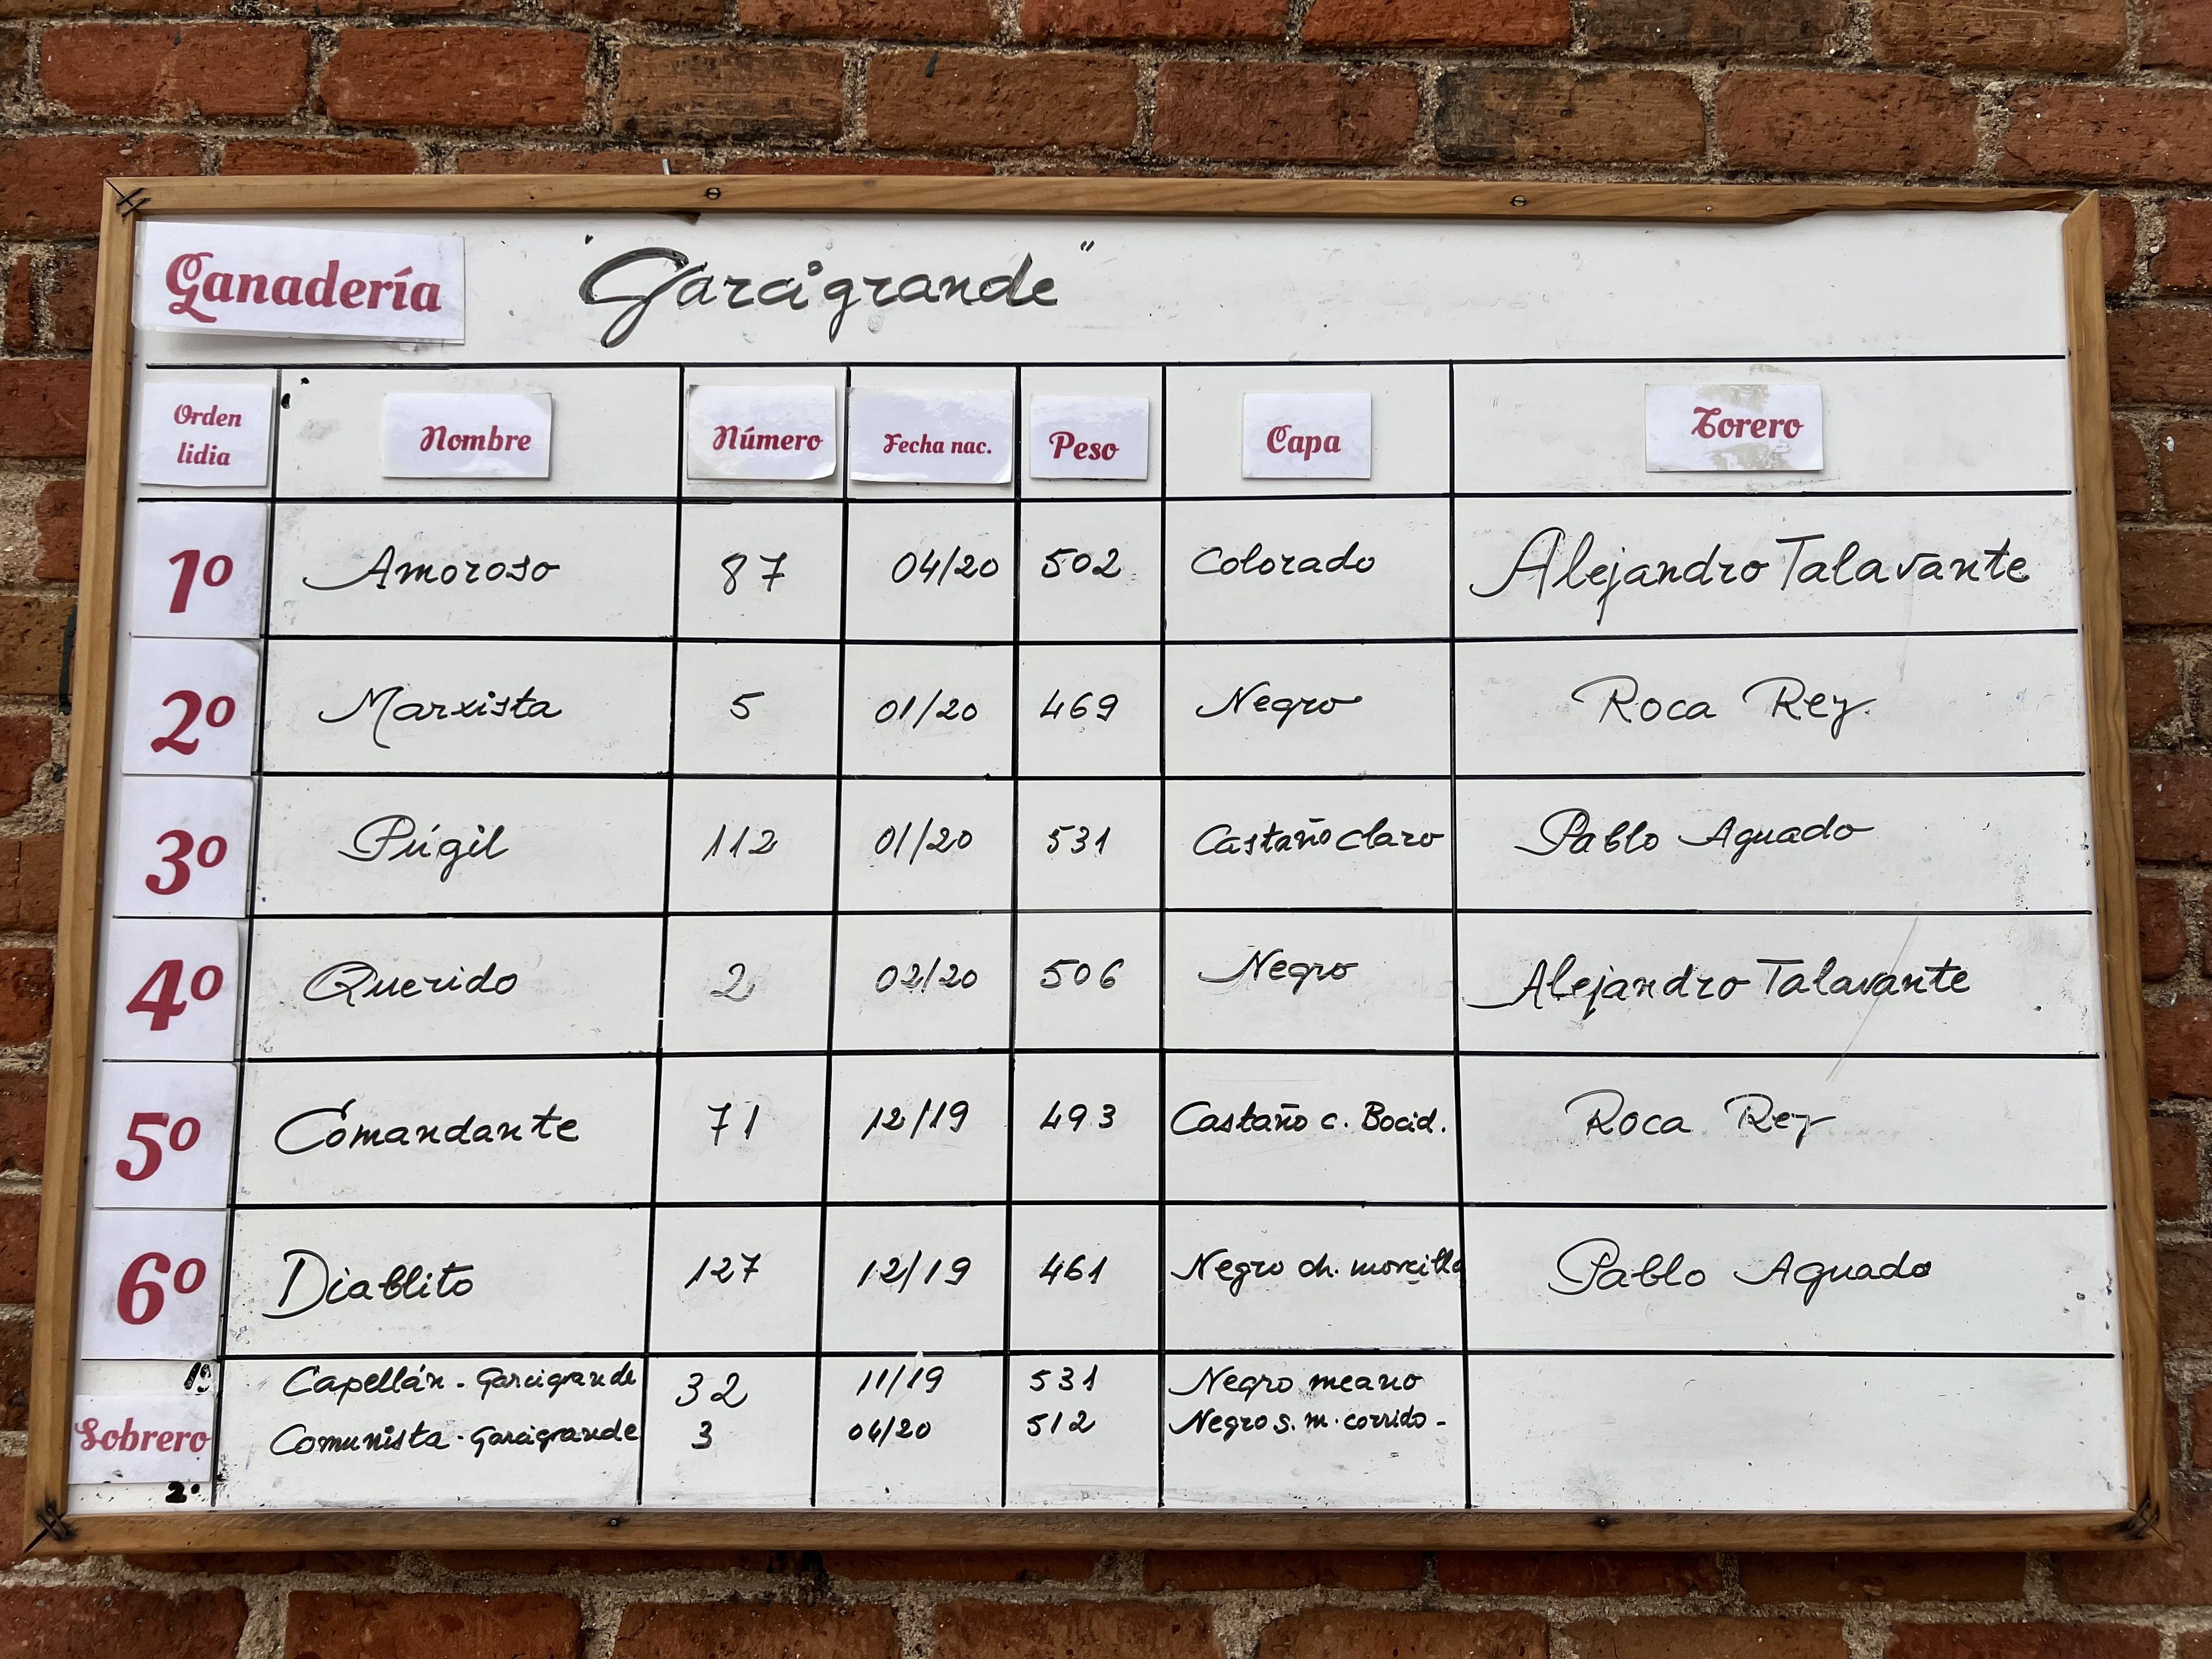 Ganadería "Garcigrande"
Orden lidia Nombre Número Fecha nac. Peso Capa Torero
1º Amoroso 87 04/20 502 Colorado Alejandro Talavante
2º Marxista 5 01/20 469 Negro Roca Rey
3º Púgil 112 01/20 531 Castaño claro Pablo Aguado
4º Querido 2 02/20 506 Negro Alejandro Talavante
5º Comandante 71 12/19 493 Castaño c. Bocid. Roca Rey
6º Diablito 127 12/19 461 Negro ch. morcillo Pablo Aguado
1º Capellán - Garcigrande 32 11/19 531 Negro meano
Sobrero Comunista - Garcigrande 3 04/20 512 Negro s. m. corrido -
2º